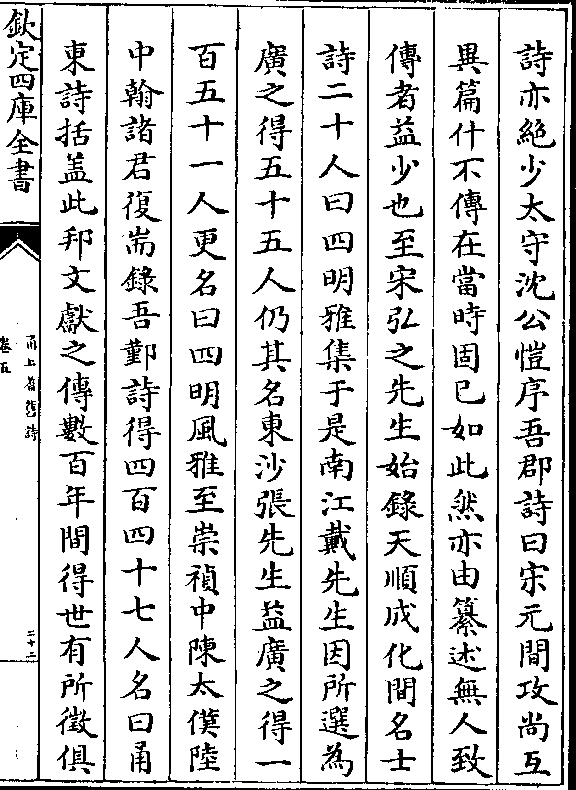 詩亦絶少太守沈公愷序吾郡詩曰宋元間攻尚互
異篇什不傳在當時固已如此然亦由纂述無人致
傳者益少也至宋弘之先生始錄天順成化間名士
詩二十人曰四明雅集于是南江戴先生因所選為
廣之得五十五人仍其名東沙張先生益廣之得一
百五十一人更名曰四明風雅至崇禎中陳太僕陸
中翰諸君復耑錄吾鄞詩得四百四十七人名曰甬
東詩括盖此邦文獻之傳數百年間得世有所徵俱
欽定四庫全書
甬上耆舊詩
卷五
二十二